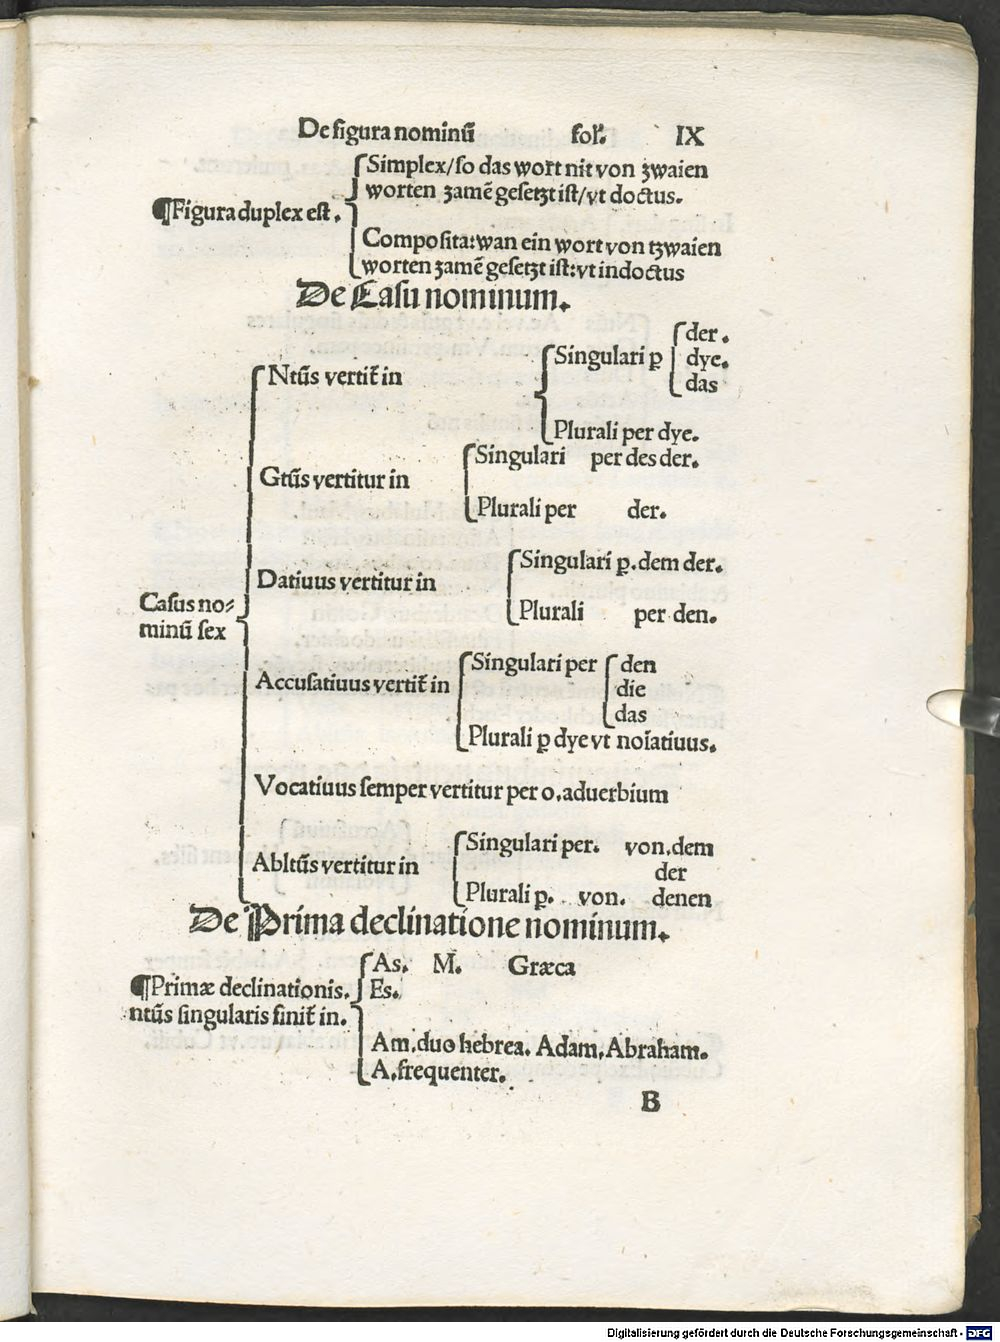 De figura nominū fol. IX
Simplex/so das wort nit von zwaien
worten zamē gesetzt ist/vt doctus.
¶Figura duplex est.
Composita:wan ein wort von tzwaien
worten zamē gesetzt ist:vt indoctus
De Casu nominum.
der.
Singulari ꝑ dye.
das
Ntūs vertit̄ in
Plurali per dye.
Singulari per des der.
Gtūs vertitur in
Plurali per der.
Singulari ꝑ. dem der.
Datiuus vertitur in
Plurali per den.
Casus no⸗
minū sex
Singulari per den
Accusatiuus vertit̄ in die
das
Plurali ꝑ dye vt noīatiuus.
Vocatiuus semper vertitur per o. aduerbium
Singulari per. von. dem
Abltūs vertitur in der
Plurali ꝑ. von. denen
De Prima declinatione nominum.
As. M. Græca
¶Primæ declinationis. Es.
ntūs singularis finit̄ in.
Am. duo hebrea. Adam, Abraham.
A. frequenter.
B
Digitalisierung gefördert durch die Deutsche Forschungsgemeinschaft - DFG